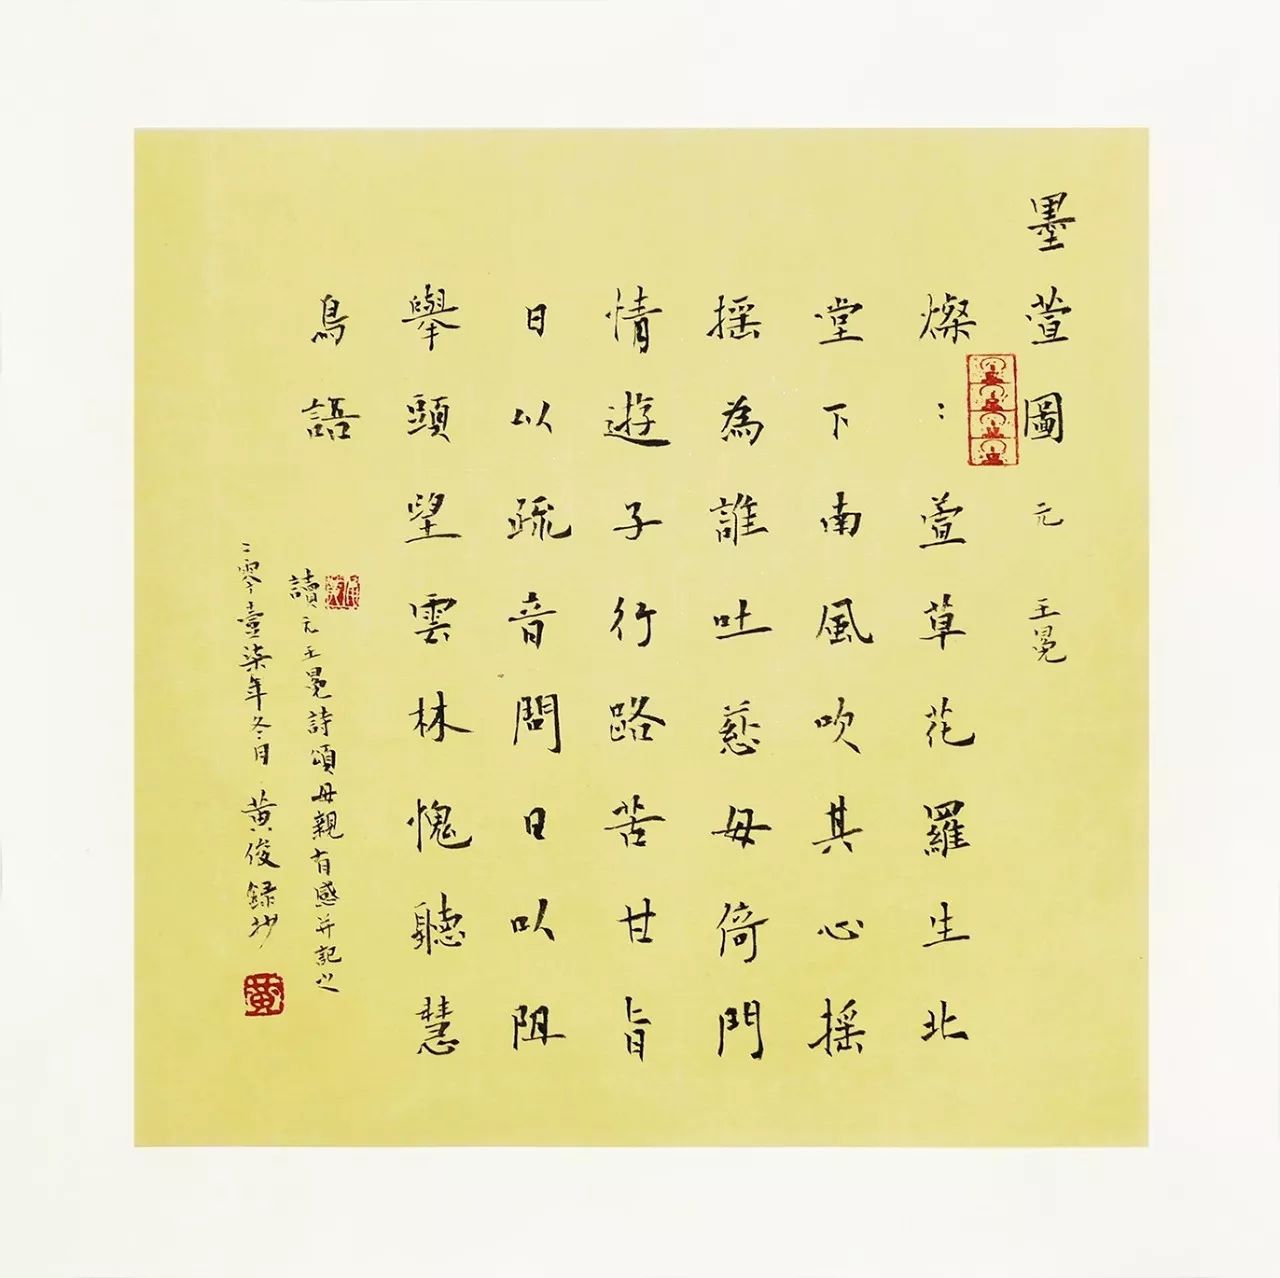 墨萱圖 元 王冕
燦〻萱草花羅生北
堂下南風吹其心搖
搖為誰吐慈母倚門
情遊子行路苦甘旨
日以疏音問日以阻
舉頭望雲林愧聽慧
鳥語
讀元王冕詩頌母親有感并記之
二零壹柒年冬月黃俊録抄
黃